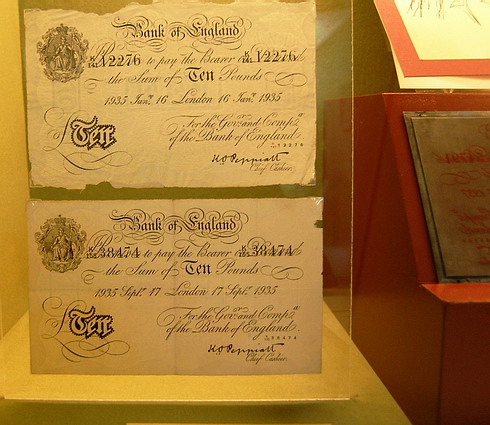 Bank of England
K/141 12276 to pay the Bearer on K/141 12276
the Sum of Ten Pounds
1935 Jany. 16 London 16 Jany. 1935
For the Govr. and Compa.
of the Bank of England
£Ten
K.O. Peppiatt
Chief Cashier.
Bank of England
38474 to pay the Bearer on 38474
the Sum of Ten Pounds
1935 Septr. 17 London 17 Septr. 1935
For the Govr. and Compa.
of the Bank of England
£Ten
K.O. Peppiatt
Chief Cashier.